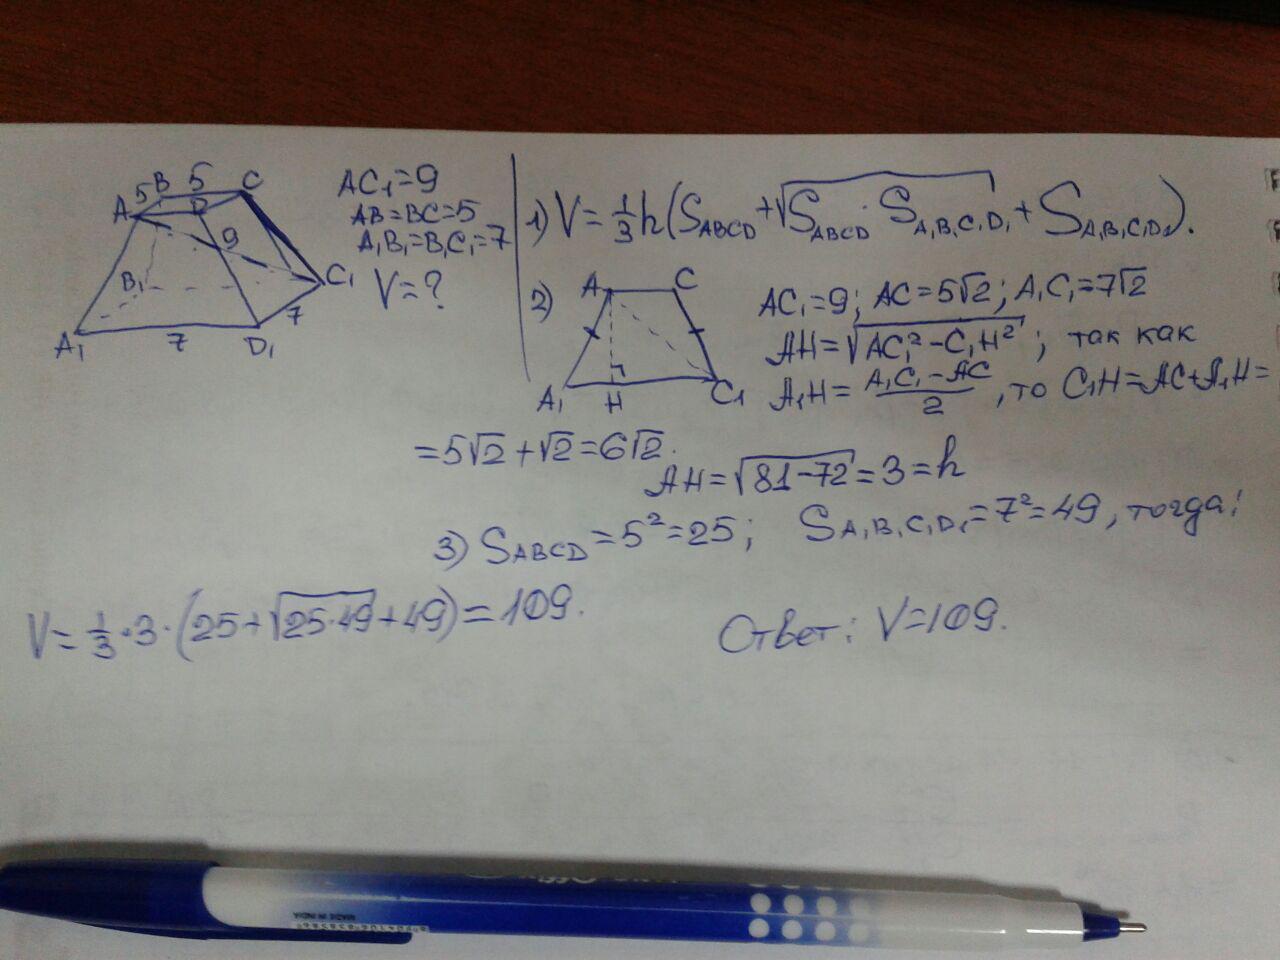 5 B 5 C
A D
9
B₁ C₁
A₁ 7 D₁ 7
AC₁=9
AB=BC=5
A₁B₁=B₁C₁=7
V=?
1) V=⅓h(S_ABCD+√(S_ABCD·S_A₁B₁C₁D₁)+S_A₁B₁C₁D₁).
2) A C
A₁ H C₁
AC₁=9; AC=5√2; A₁C₁=7√2
AH=√(AC₁²-C₁H²); так как
A₁H=(A₁C₁-AC)/2, то C₁H=AC+A₁H=
=5√2+√2=6√2.
AH=√(81-72)=3=h
3) S_ABCD=5²=25; S_A₁B₁C₁D₁=7²=49, тогда:
V=⅓·3·(25+√(25·49)+49)=109.
Ответ: V=109.
MADE IN INDIA